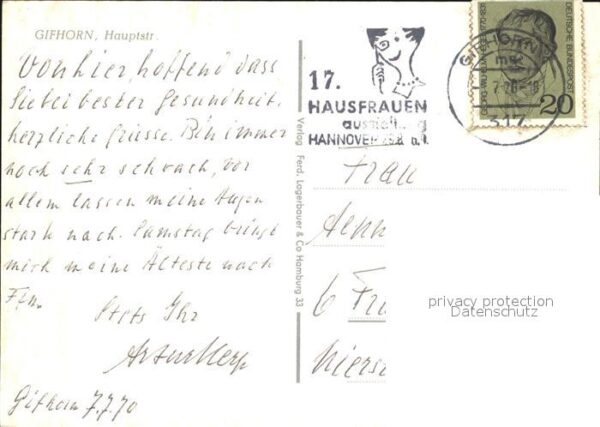 GIFHORN, Hauptstr.
Von hier, hoffend dass
Sie bei bester Gesundheit,
herzliche Grüsse. Bin immer
noch sehr schwach, vor
allem lassen meine Augen
stark nach. Samstag bringt
mich meine Älteste nach
Ffm.
Stets Ihr
Gifhorn 7.7.70
Verlag Ferd. Lagerbauer & Co Hamburg 33
17.
HAUSFRAUEN
ausstellung
HANNOVER
GIFHORN
317
DEUTSCHE BUNDESPOST
20
Frau
6
privacy protection
Datenschutz